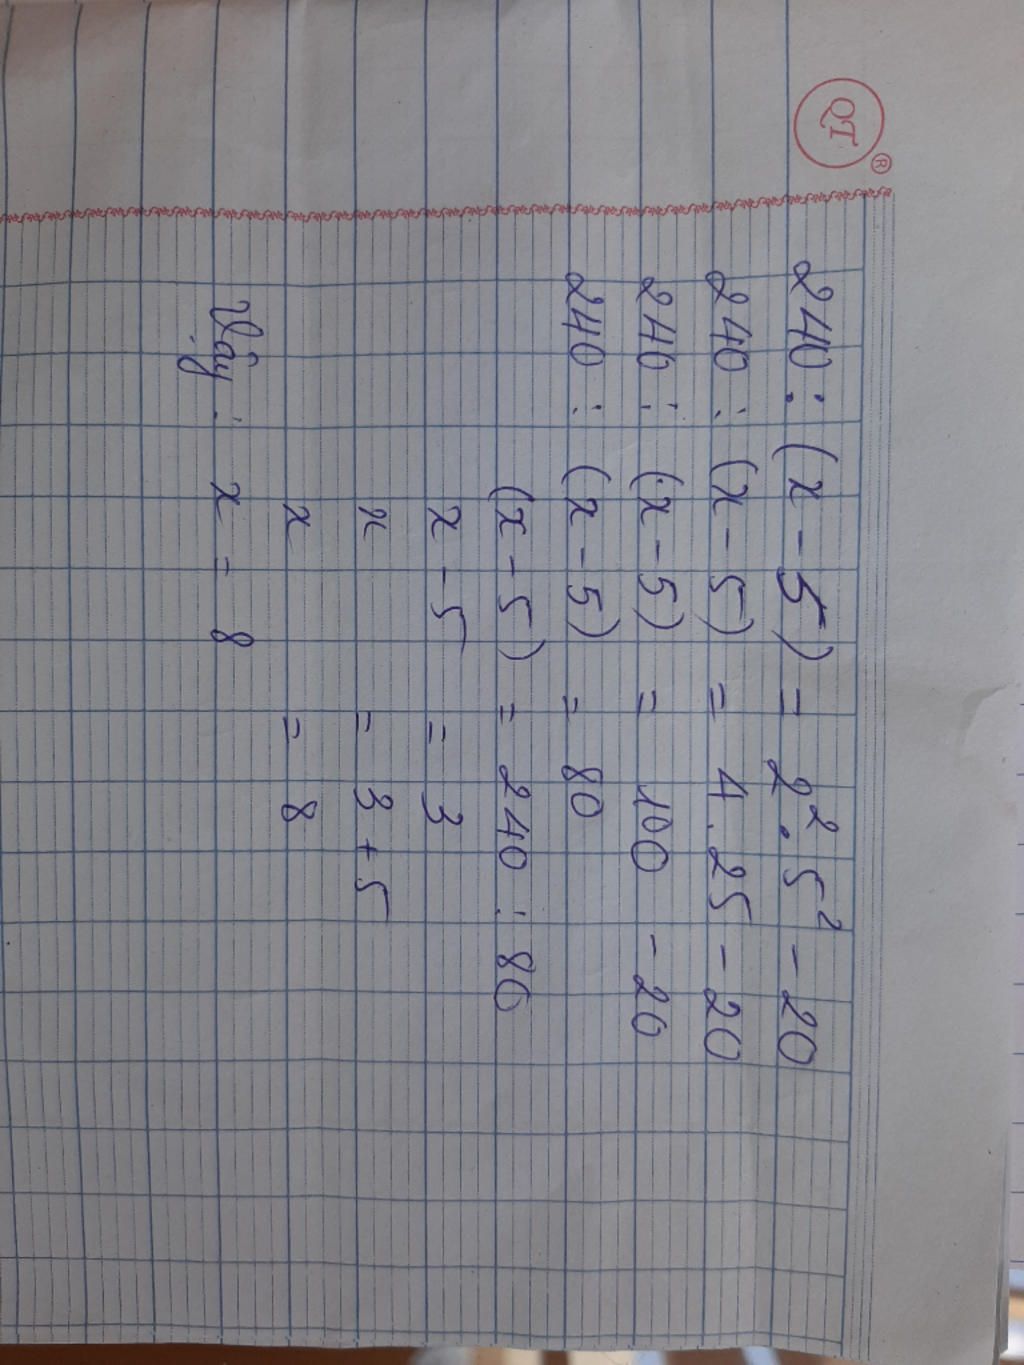 QT ®
240 : (x - 5) = 2² . 5² - 20
240 : (x - 5) = 4 . 25 - 20
240 : (x - 5) = 100 - 20
240 : (x - 5) = 80
(x - 5) = 240 : 80
x - 5 = 3
x = 3 + 5
x = 8
Vậy : x = 8